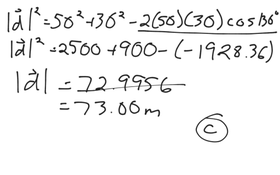 |d⃗|² = 50² + 30² - 2(50)(30) cos130°
|d⃗|² = 2500 + 900 - (-1928.36)
|d⃗| = 72.9956
= 73.00 m
C